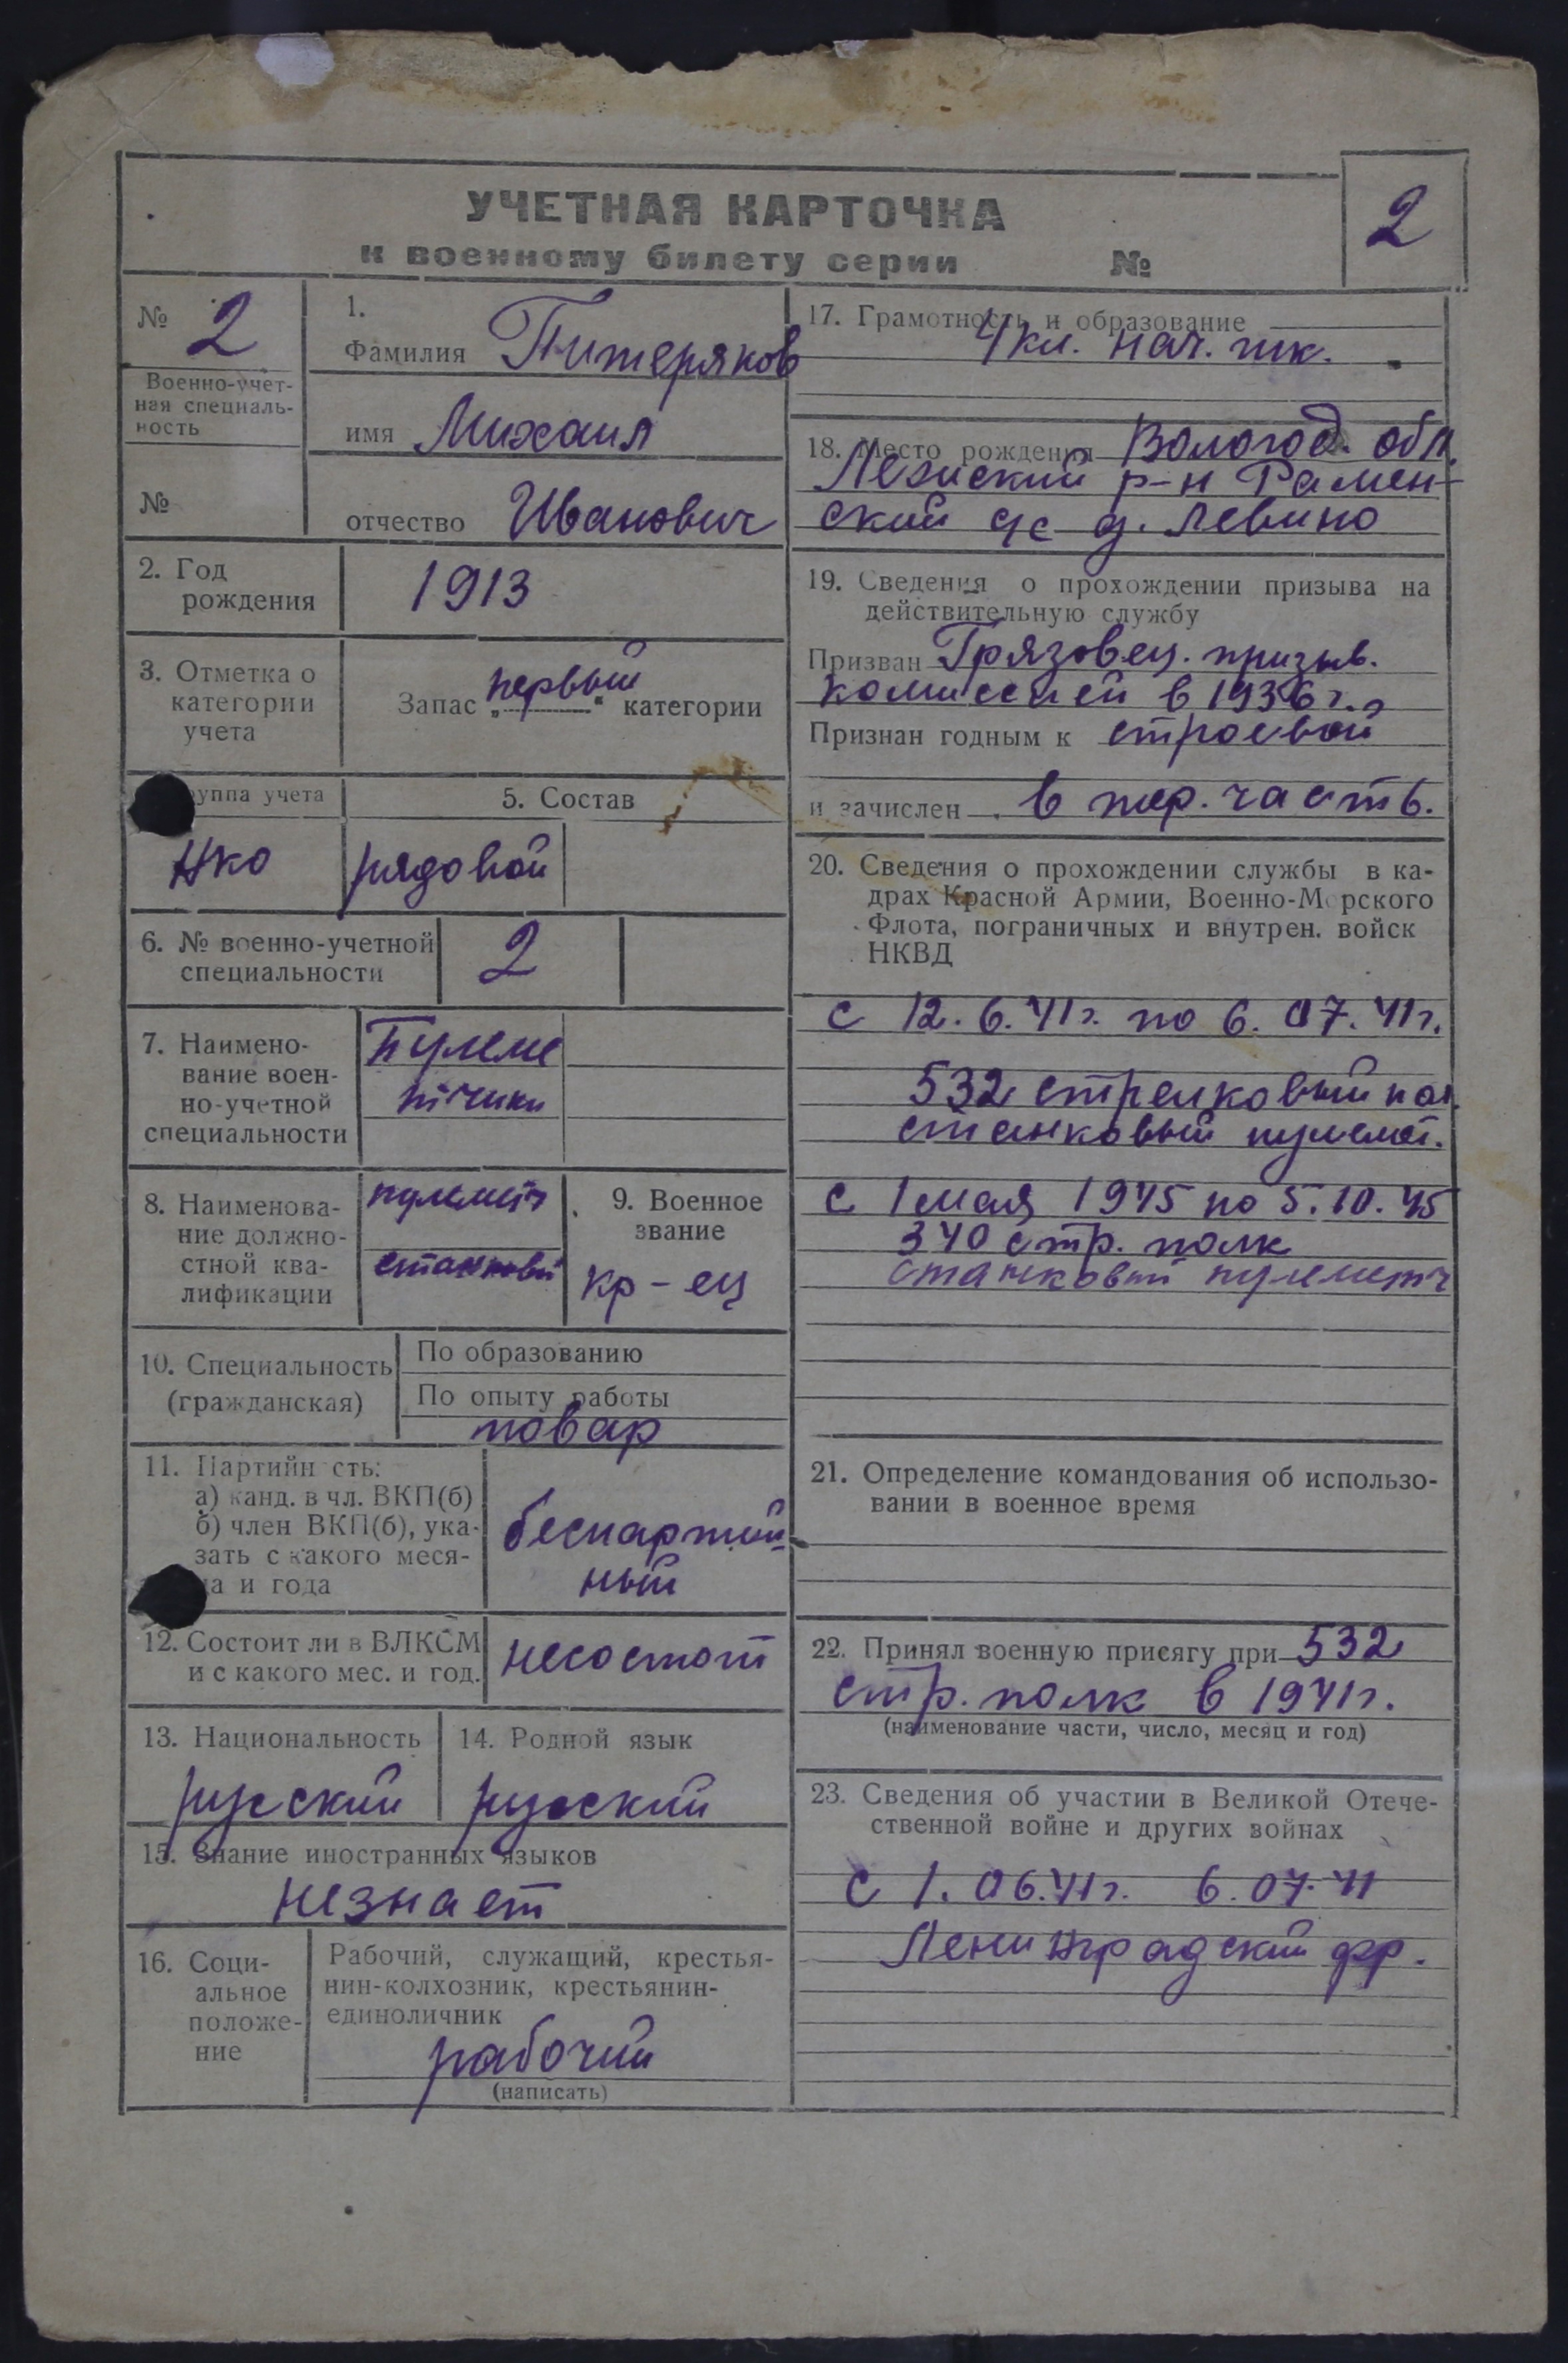 УЧЕТНАЯ КАРТОЧКА
к военному билету серии №
2
№ 2
Военно-учет-
ная специаль-
ность
№
1.
Фамилия Питеряков
имя Михаил
отчество Иванович
2. Год
рождения
1913
3. Отметка о
категории
учета
Запас „первый“ категории
уппа учета
5. Состав
НКО
рядовой
6. № военно-учетной
специальности
2
7. Наимено-
вание воен-
но-учетной
специальности
Пулеме
тчики
8. Наименова-
ние должно-
стной ква-
лификации
пулеметч
станковый
9. Военное
звание
кр-ец
10. Специальность
(гражданская)
По образованию
По опыту работы
повар
11. Партийн сть:
а) канд. в чл. ВКП(б)
б) член ВКП(б), ука-
зать с какого меся-
ца и года
беспартий-
ный
12. Состоит ли в ВЛКСМ
и с какого мес. и год.
несостоит
13. Национальность
русский
14. Родной язык
русский
15. Знание иностранных языков
незнает
16. Соци-
альное
положе-
ние
Рабочий, служащий, крестья-
нин-колхозник, крестьянин-
единоличник
рабочий
(написать)
17. Грамотность и образование
4 кл. нач. шк.
18. Место рождения Вологод. обл.
Лежский р-н Рамен-
ский с/с д. Левино
19. Сведения о прохождении призыва на
действительную службу
Призван Грязовец. призыв.
комиссией в 1936 г.
Признан годным к строевой
и зачислен в тер. часть.
20. Сведения о прохождении службы в ка-
драх Красной Армии, Военно-Морского
Флота, пограничных и внутрен. войск
НКВД
с 12.6.41г. по 6.07.41г.
532 стрелковый пол.
станковый пулемет.
с 1 мая 1945 по 5.10.45
340 стр. полк
станковый пулеметч
21. Определение командования об использо-
вании в военное время
22. Принял военную присягу при 532
стр. полк в 1941г.
(наименование части, число, месяц и год)
23. Сведения об участии в Великой Отече-
ственной войне и других войнах
с 1.06.41г. 6.07.41
Ленинградский фр.